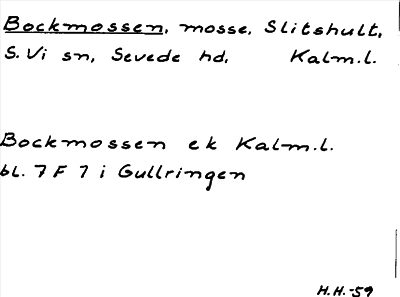 Bockmossen, mosse, Slitshult,
S. Vi sn, Sevede hd, Kalm.l.
Bockmossen ek Kalm.l.
bl. 7 F 7 i Gullringen
H.H.-59